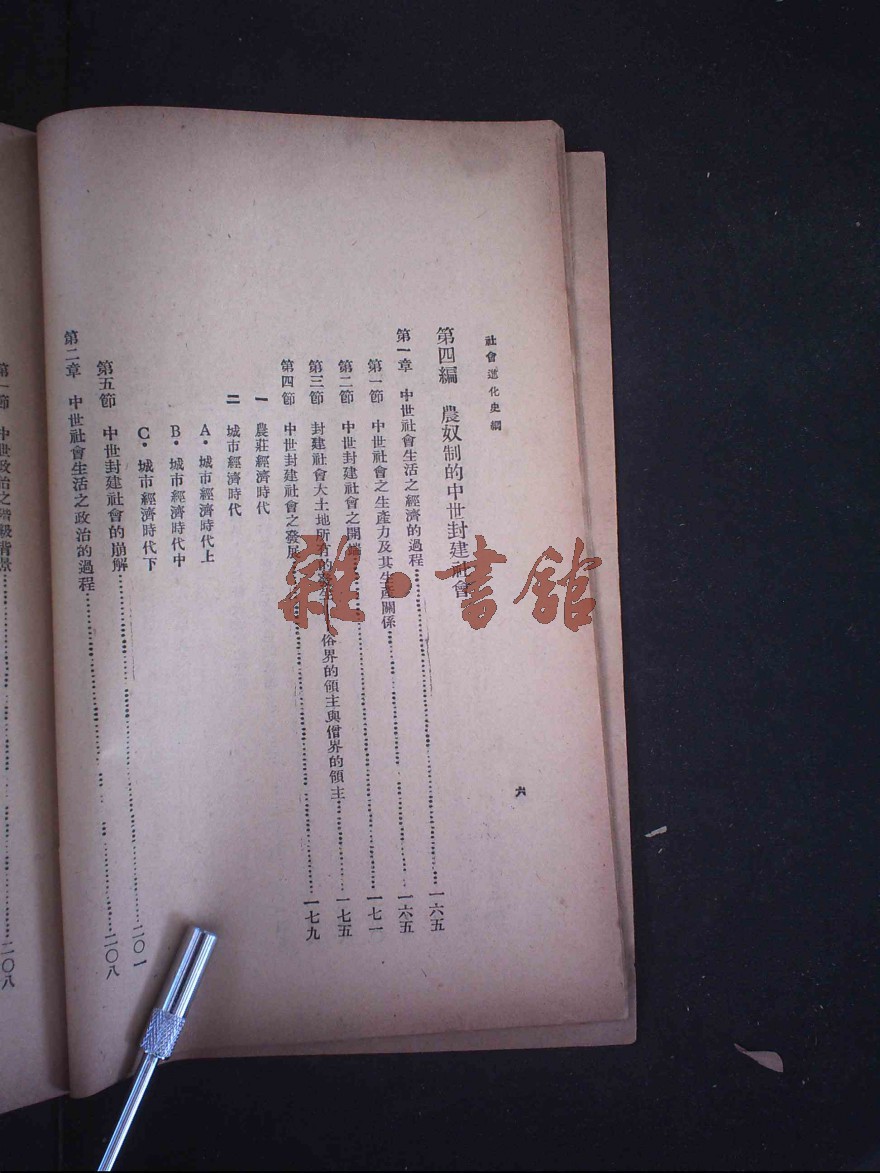 社會進化史綱
六
第四編 農奴制的中世封建社會
第一章 中世社會生活之經濟的過程……一六五
第一節 中世社會之生產力及其生產關係……一六五
第二節 中世封建社會之開端……一七一
第三節 封建社會大土地所有的 俗界的領主與僧界的領主……一七五
第四節 中世封建社會之發展……一七九
一 農莊經濟時代
二 城市經濟時代
A·城市經濟時代上
B·城市經濟時代中
C·城市經濟時代下
第五節 中世封建社會的崩解……二〇一
第二章 中世社會生活之政治的過程……二〇八
第一節 中世政治之階級背景……二〇八
雜·書館